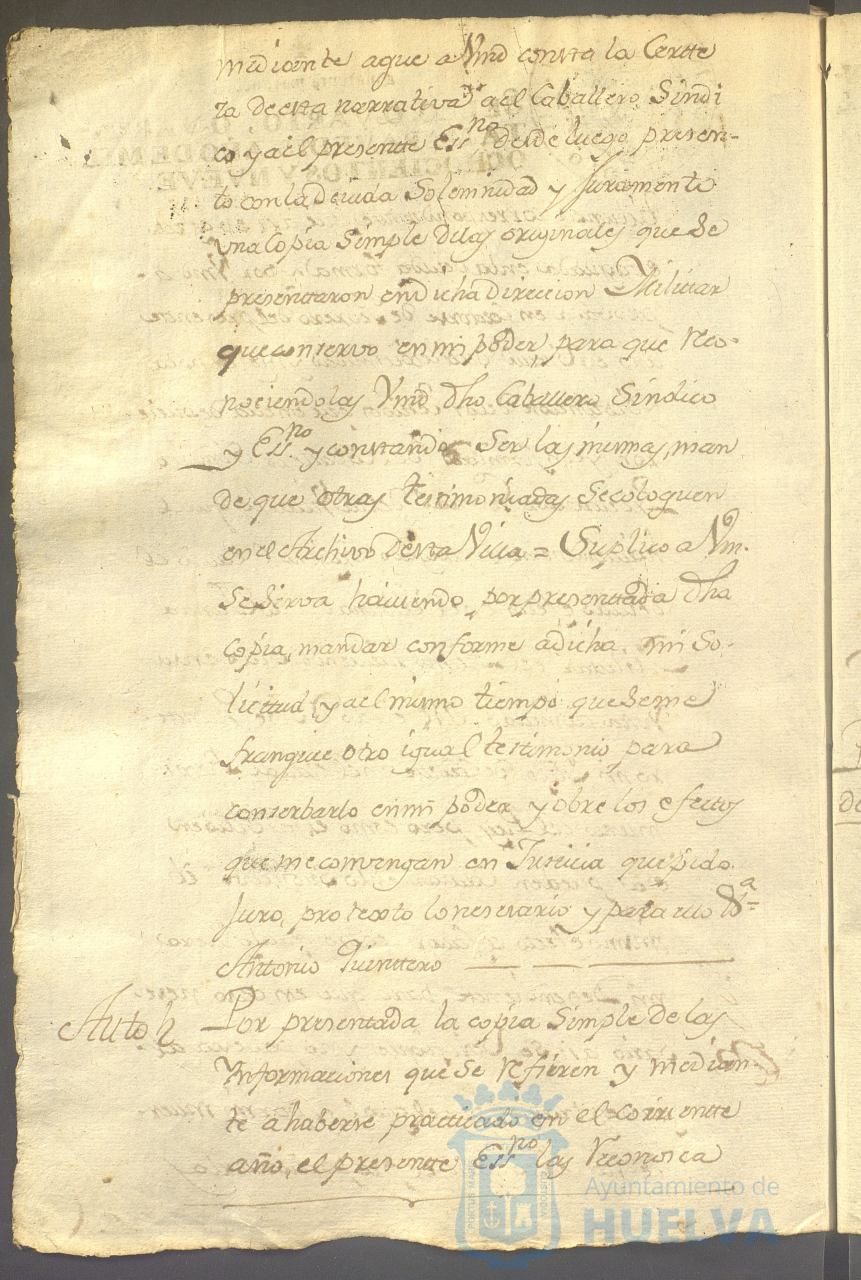 mediante aque a Vmd consta la Certte
za deesta narrativa a el Caballero Sindi
co y a el presentte Essno desde luego presen-
to con la devida Solemnidad y Juramento
vna copia Simple delas originales que se
presentaron en dicha direccion Militar
que conservo en mi poder para que reco-
nociendolas Vmd dho Caballero Sindico
y Essno y constando Ser las mismas, man
de que otras testimoniadas Se coloquen
en el Archivo desta Villa = Suplico a Vm.
Se Sirva haviendo por presenttada dha
copia, mandar conforme a dicha mi So-
licitud y a el mismo tiempo que Se me
franquee otro igual testimonio para
conserbarlo en mi poder y obre los efectos
que me convengan en Justicia que pido
Juro, protexto lo nesesario y para ello Va=
Antonio Quinttero
Auto Por presentada la copia Simple de las
Informaciones que Se refieren y median-
te a haberse practicado en el corriente
año, el presentte Essno las reconosca
Ayuntamiento de
HUELVA